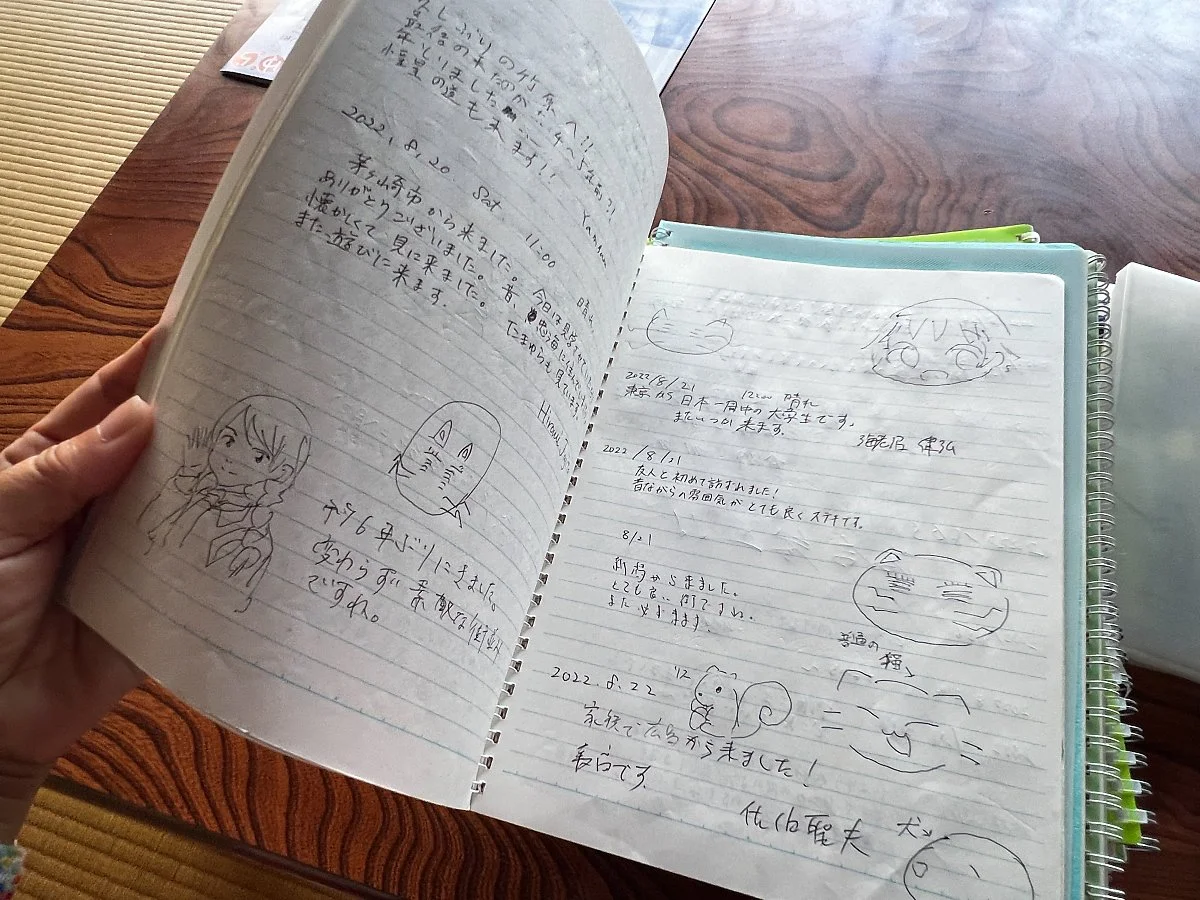 久しぶりの竹原へ!!
年とりました
憧憬の道も来ます!!
Yamada
2022. 8. 20 Sat 11:00 晴れ
茅ヶ崎市から来ました。今日は見学させて
ありがとうございました。昔、
懐かしくて、見に来ました。たまゆらも見ています
また遊びに来ます。
6年ぶりにきました。
変わらず素敵な街並み
ですね。
2022/8/21 12:00 晴れ
東京から日本一周中の大学生です。
またいつか来ます。
2022/8/21
友人と初めて訪ずれました!
昔ながらの雰囲気がとても良くステキです。
8/21
新潟から来ました。
とても良い町ですね。
また必ずきます。
普通の
猫
2022. 8. 22
リス
家族で広島から来ました!
面白です。
佐伯聖夫
犬